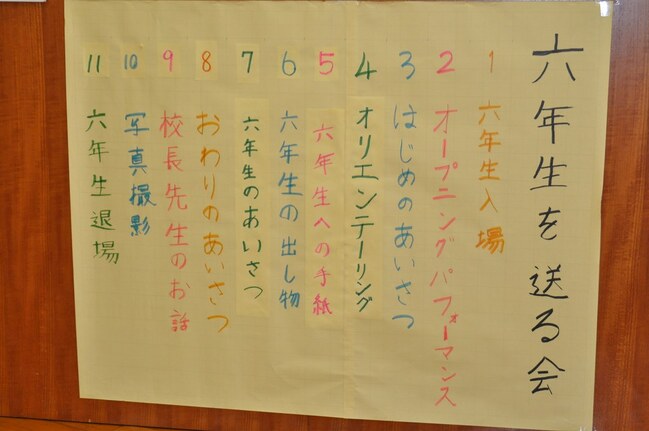 六年生を送る会
1 六年生入場
2 オープニングパフォーマンス
3 はじめのあいさつ
4 オリエンテーリング
5 六年生への手紙
6 六年生の出し物
7 六年生のあいさつ
8 おわりのあいさつ
9 校長先生のお話
10 写真撮影
11 六年生退場